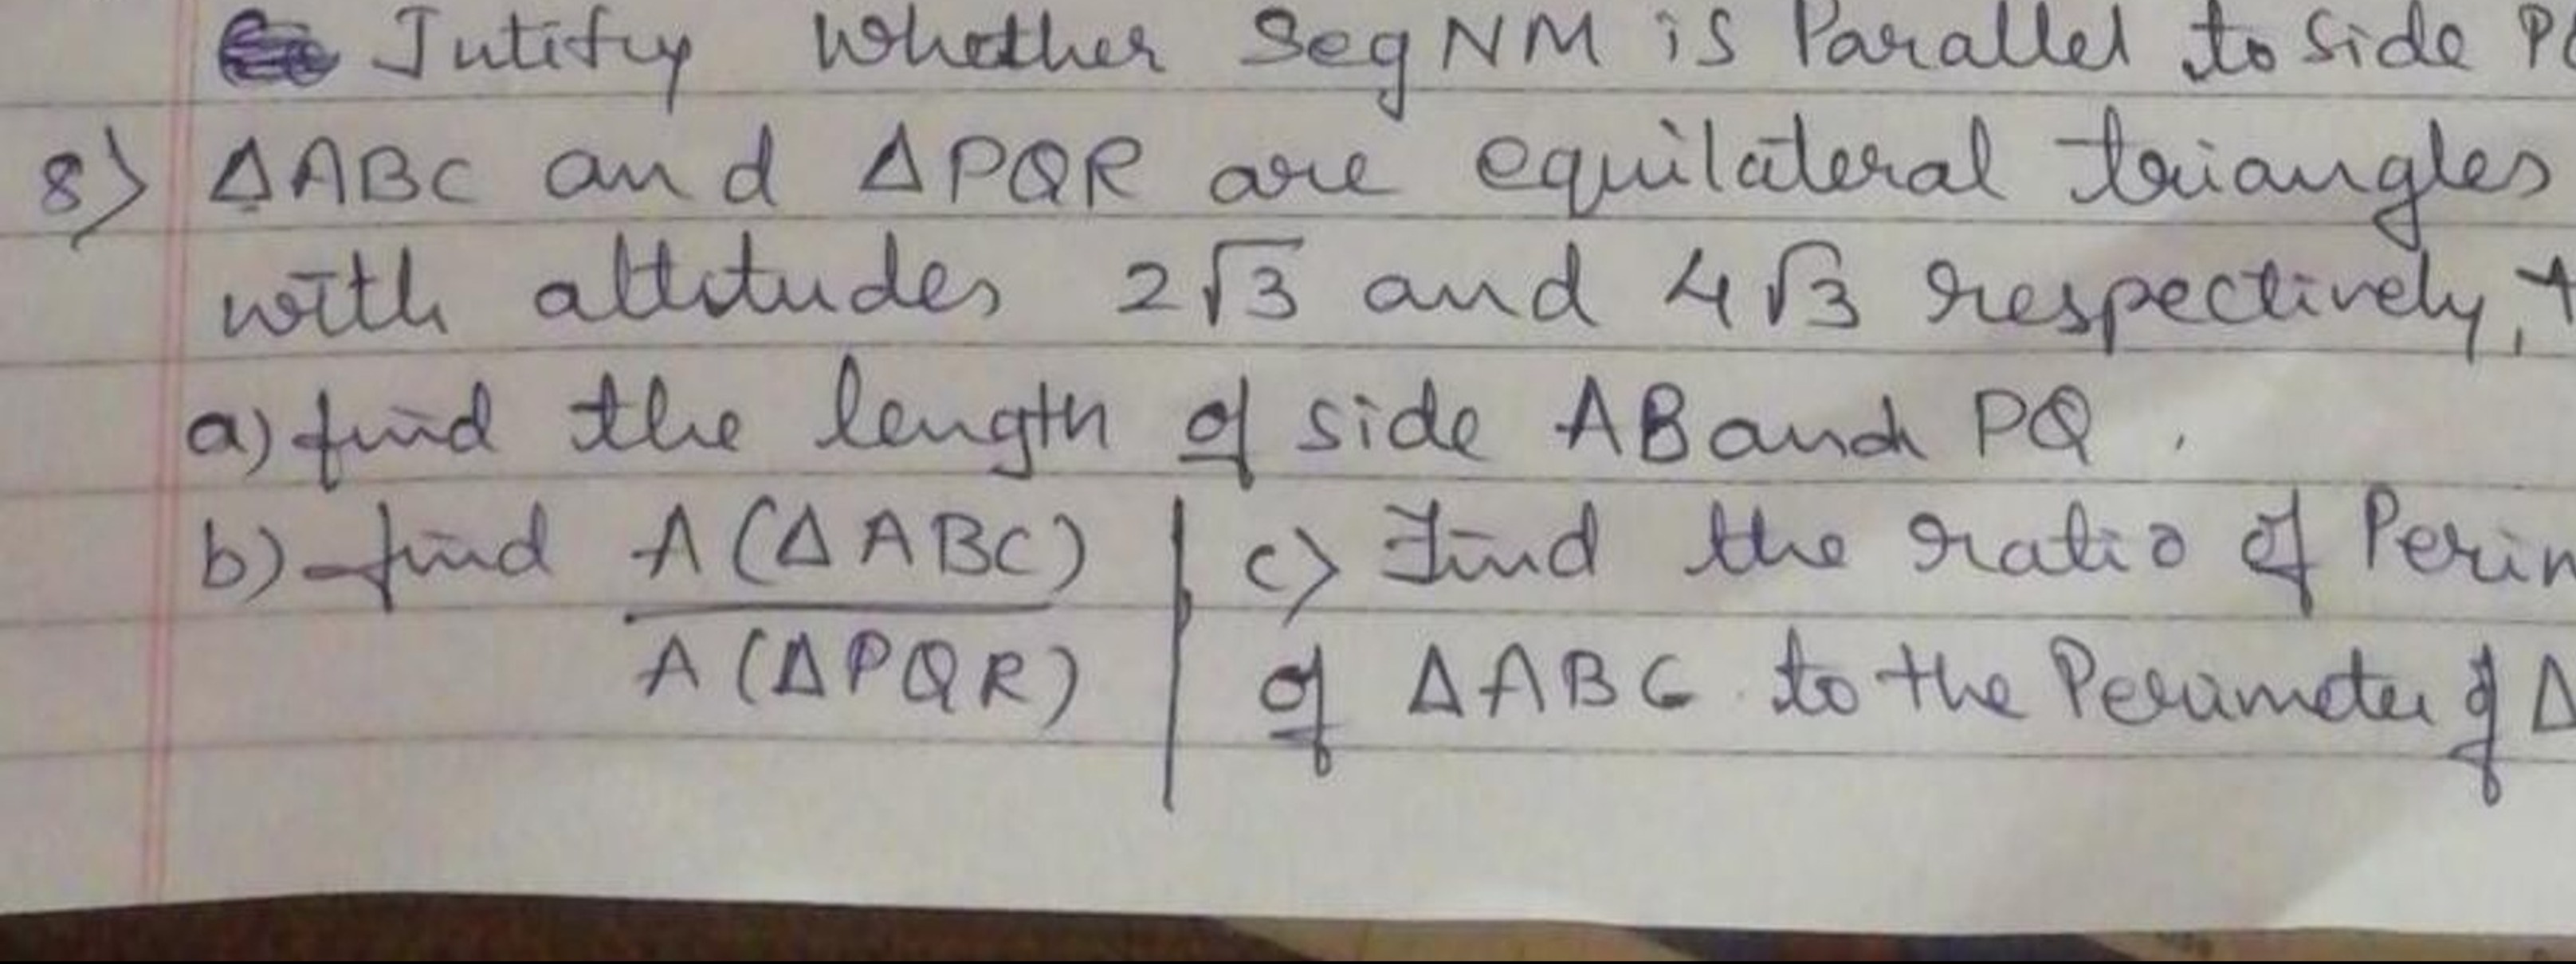 Jutitfy whether seg NM is Parallel to side
8) ΔABC and ΔPQR are equilateral triangles
with altitudes 2√3 and 4√3 respectively,
a) find the length of side AB and PQ.
b) find A(ΔABC)
A(ΔPQR)
c) Find the ratio of Perim
of ΔABC to the Perimeter of Δ